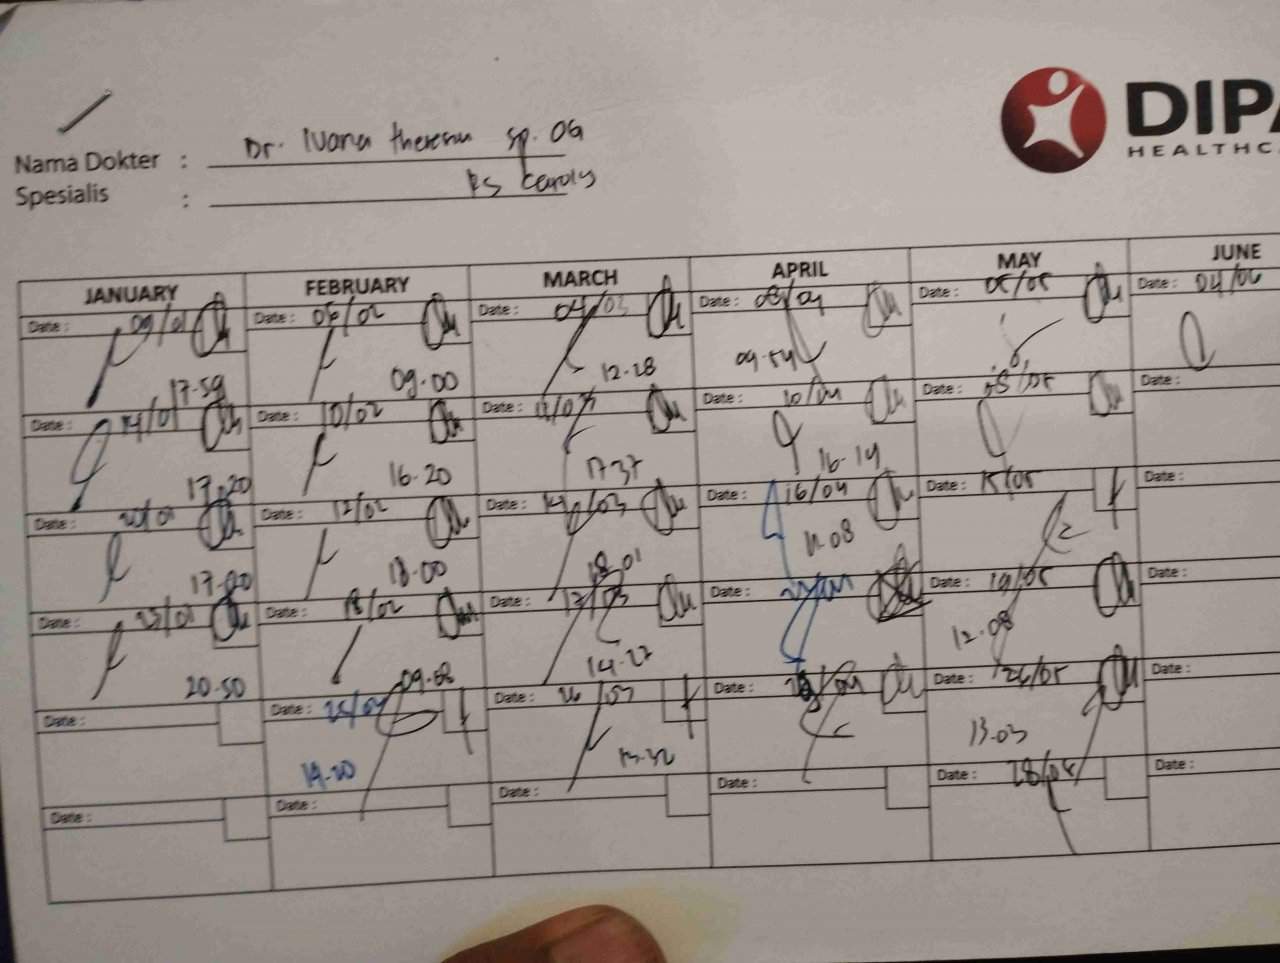 DIPA
HEALTHCA
Nama Dokter : Dr. Ivana theresia sp. OG
Spesialis : RS Carolus
JANUARY FEBRUARY MARCH APRIL MAY JUNE
Date : 09/01 Date : 06/02 Date : 04/03 Date : 08/04 Date : 05/05 Date : 04/06
17-59 09.00 12-28 09-54
Date : 14/01 Date : 10/02 Date : 11/03 Date : 10/04 Date : 08/05 Date :
17.20 16-20 17.37 16-14
Date : 20/01 Date : 12/02 Date : 14/03 Date : 16/04 Date : 15/05 Date :
17-00 18-00 18-01 11-08
Date : 23/01 Date : 18/02 Date : 17/03 Date : Date : 19/05 Date :
20-50 09-08 14-27 12-08
Date : Date : 25/02 Date : 26/03 Date : Date : 26/05 Date :
19-20 13-32 13-03
Date : Date : Date : Date : Date : 28/05 Date :